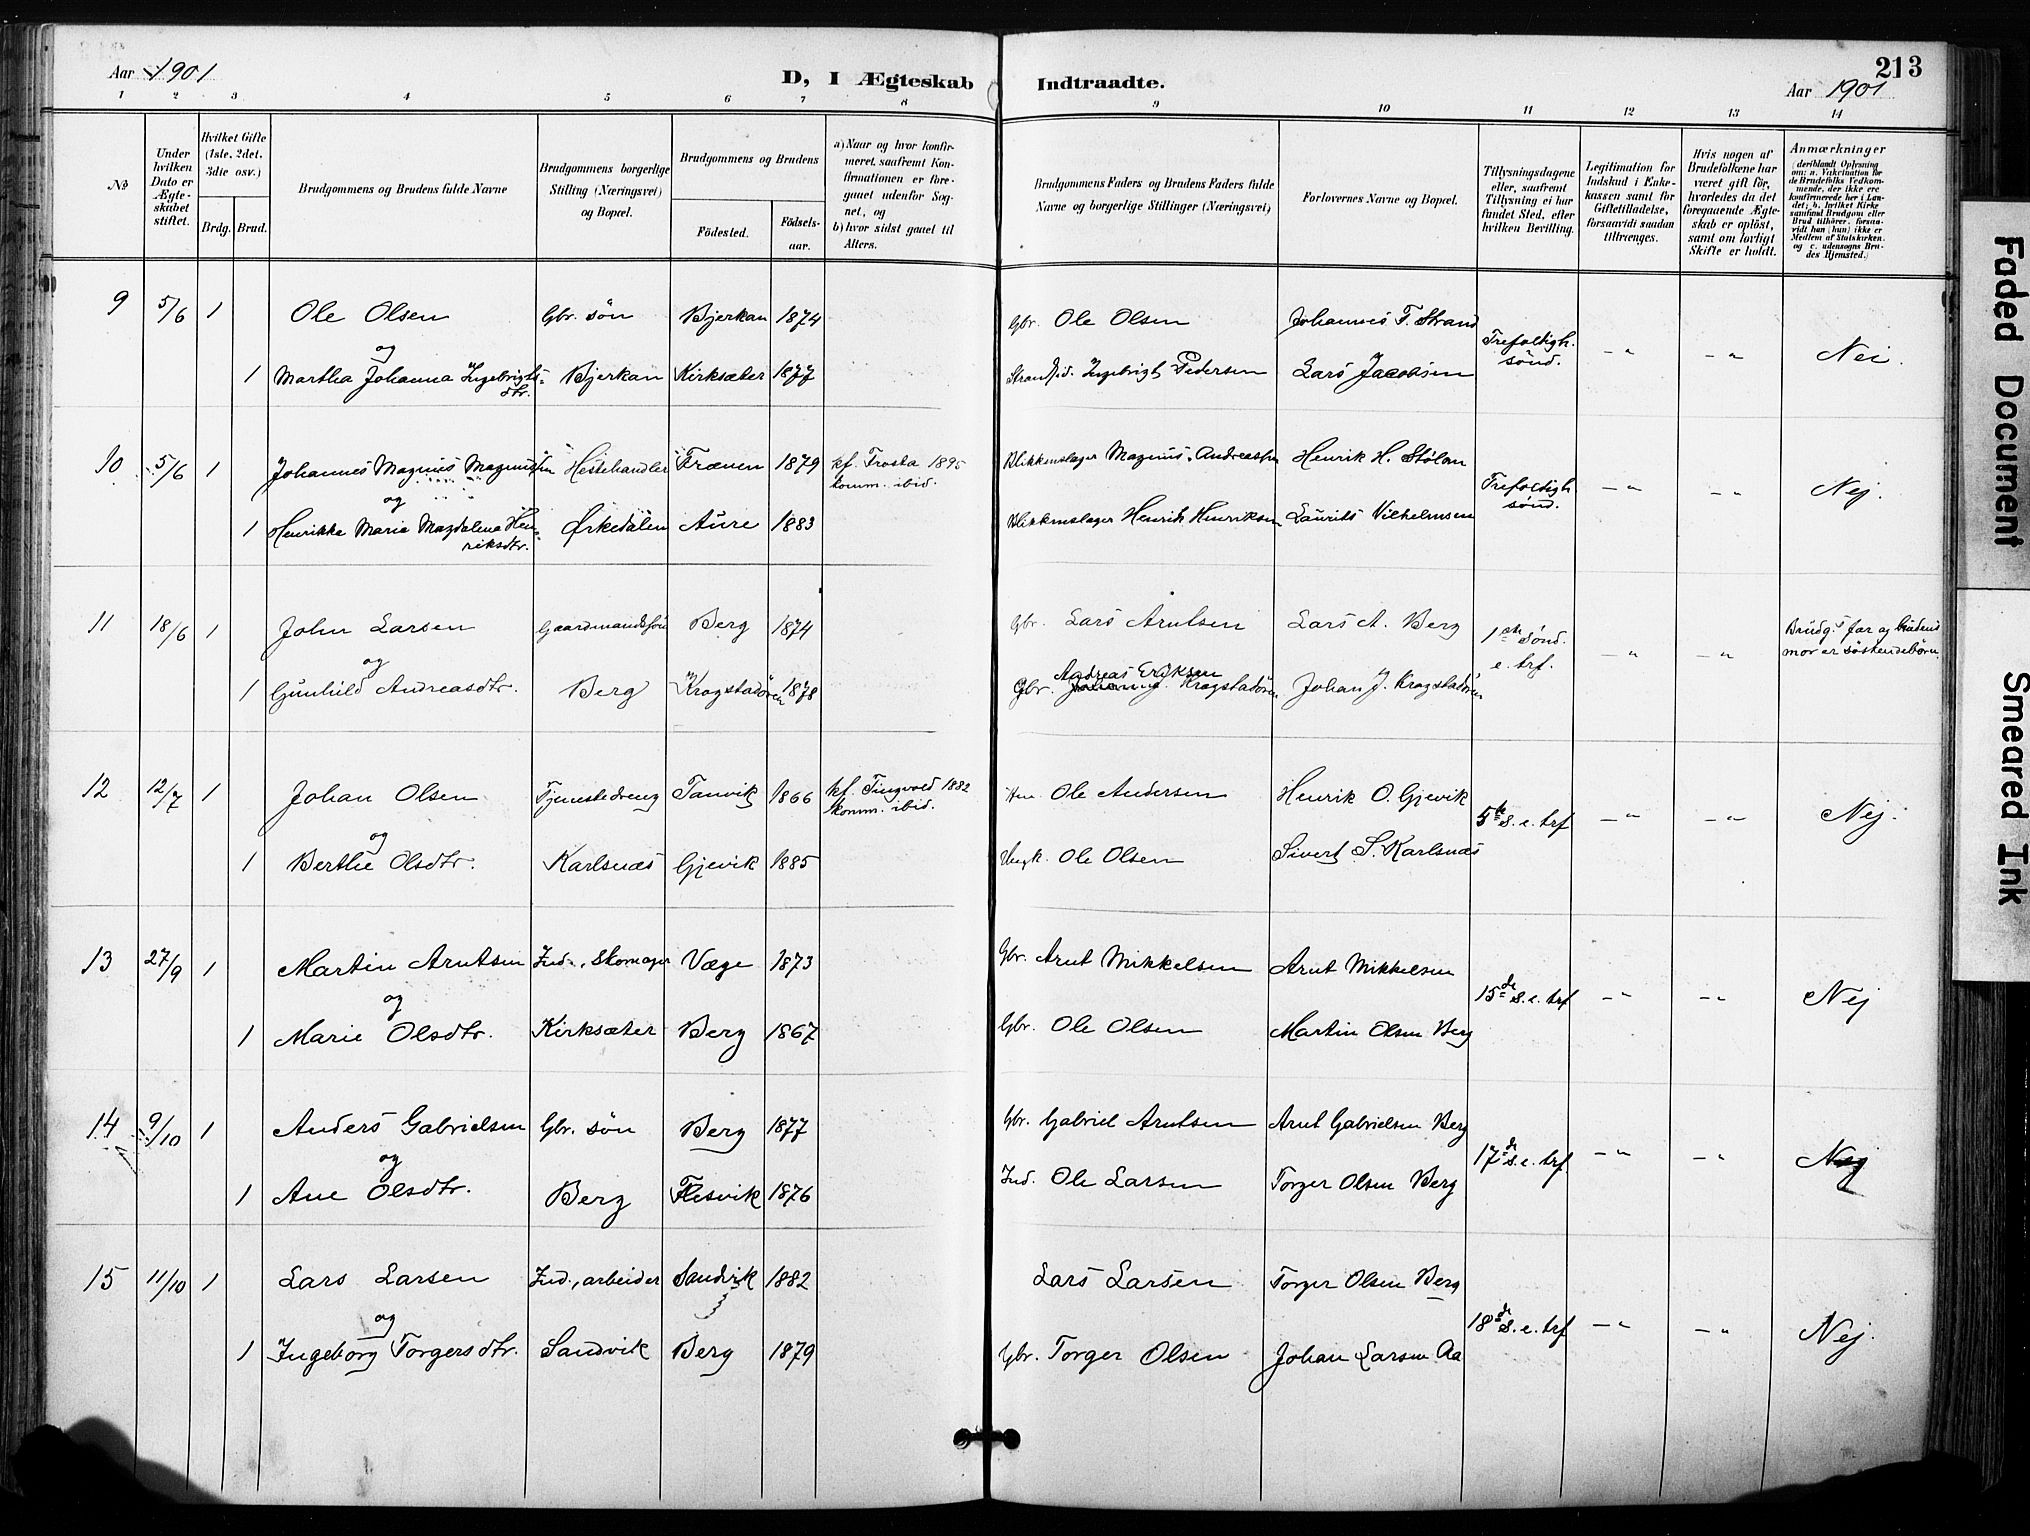 Aar 1901
D, I Ægteskab Indtraadte.
Aar 1901
213
1 2 3 4 5 6 7 8 9 10 11 12 13 14
№
Under hvilken Dato er Ægte-skabet stiftet.
Hvilket Gifte (1ste, 2det, 3die osv.)
Brdg. Brud.
Brudgommens og Brudens fulde Navne
Brudgommens borgerlige Stilling (Næringsvei) og Bopæl.
Brudgommens og Brudens
Fødested.
Fødsels-aar.
a) Naar og hvor konfir-meret, saafremt Kon-firmationen er fore-gaaet udenfor Sog-net, og
b) hvor sidst gaaet til Alters.
Brudgommens Faders og Brudens Faders fulde Navne og borgerlige Stillinger (Næringsvei)
Forlovernes Navne og Bopæl.
Tillysningsdagene eller, saafremt Tillysning ei har fundet Sted, efter hvilken Bevilling.
Legitimation for Indskud i Enke-kassen samt for Giftetilladelse, forsaavidt saadan tiltrænges.
Hvis nogen af Brudefolkene har været gift før, hvorledes da det foregaaende Ægte-skab er opløst, samt om lovligt Skifte er holdt.
Anmærkninger
(deriblandt Oplysning om: a. Vakcination for de Brudefolks Vedkom-mende, der ikke ere konfirmerede her i Lan-det; b. hvilket Kirke samfund Brudgom eller Brud tilhører, forsaa-vidt han (hun) ikke er Medlem af Statskirken. og c. udensogns Bru-des Hjemsted.)
9 5/6 1 Ole Olsen Gbr. søn Bjerkan 1874 Gbr. Ole Olsen Johannes F. Strand
og Trefoltigh. sønd. -"- -"- Nei.
1 Martha Johanna Ingebrigts-dtr. Bjerkan Kirksæter 1877 Strandsid. Ingebrigt Pedersen Lars Jacobsen
10 5/6 1 Johannes Magnus Magnussen Hestehandler Frænen 1879 kf. Frosta 1895 komm. ibid. Blikkenslager Magnus Andreassen Henrik H. Stølan
og Trefoltigh. sønd. -"- -"- Nej.
1 Henrikke Marie Magdalena Hen-riksdtr. Ørkedalen Aure 1883 Blikkenslager Henrik Henriksen Laurits Vilhelmsen
11 18/6 1 John Larsen Gaardmandssøn Berg 1874 Gbr. Lars Arntsen Lars A. Berg
og 1ste Sønd. e. trf. -"- -"- Brudg.s far og brudens mor er søskendebørn.
Andreas Eriksen
1 Gunhild Andreasdtr. Berg Krogstadøren 1878 Gbr. Krogstadøren Johan J. Krogstadøren
12 12/7 1 Johan Olsen Tjenestedreng Tanvik 1866 kf. Tingvold 1882 komm. ibid. Ole Andersen Henrik O. Gjevik
og 5te s. e. trf -"- -"- Nej.
1 Berthe Olsdtr. Karlsnæs Gjevik 1885 Ungk. Ole Olsen Sivert S. Karlsnæs
13 27/9 1 Martin Arntsen Ind., Skomager Væge 1873 Gbr. Arnt Mikkelsen Arnt Mikkelsen
og 15de s. e. trf -"- -"- Nej
1 Marie Olsdtr. Kirksæter Berg 1867 Gbr. Ole Olsen Martin Olsen Berg
14 9/10 1 Anders Gabrielsen Gbr. søn Berg 1877 Gbr. Gabriel Arntsen Arnt Gabrielsen Berg
og 17de s. e. trf -"- -"- Nej
1 Ane Olsdtr. Berg Flesvik 1876 Ind. Ole Larsen Torger Olsen Berg
15 11/10 1 Lars Larsen Ind., arbeider Sandvik 1882 Lars Larsen Torger Olsen Berg
og 18de s. e. trf -"- -"- Nej.
1 Ingeborg Torgersdtr. Sandvik Berg 1879 Gbr. Torger Olsen Johan Larsen Aa
Faded Document
Smeared Ink